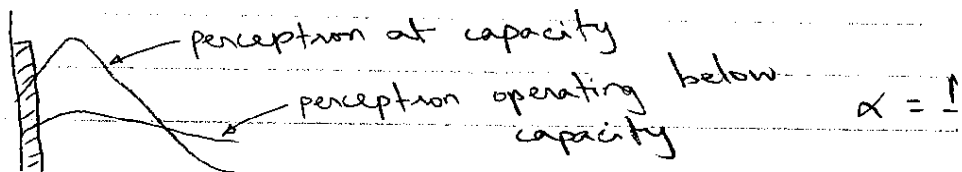 perceptron at capacity
perceptron operating below
capacity
α =